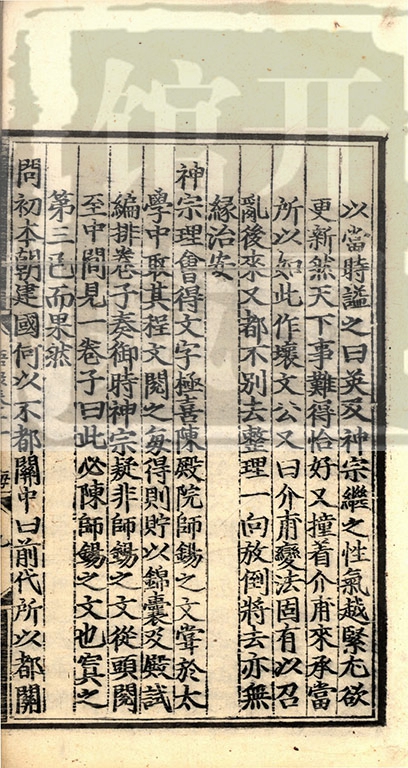 以當時謚之曰英及神宗繼之性氣越緊尤欲
更新然天下事難得恰好又撞着介甫來承當
所以如此作壞文公又曰介甫變法固有以召
亂後來又都不別去整理一向放倒將去亦無
緣治安
神宗理會得文字極喜陳殿院師錫之文甞於太
學中取其程文閱之每得則貯以錦囊及殿試
編排卷子奏御時神宗疑非師錫之文從頭閱
至中間見一卷子曰此必陳師錫之文也寘之
第三已而果然
問初本朝建國何以不都關中曰前代所以都關